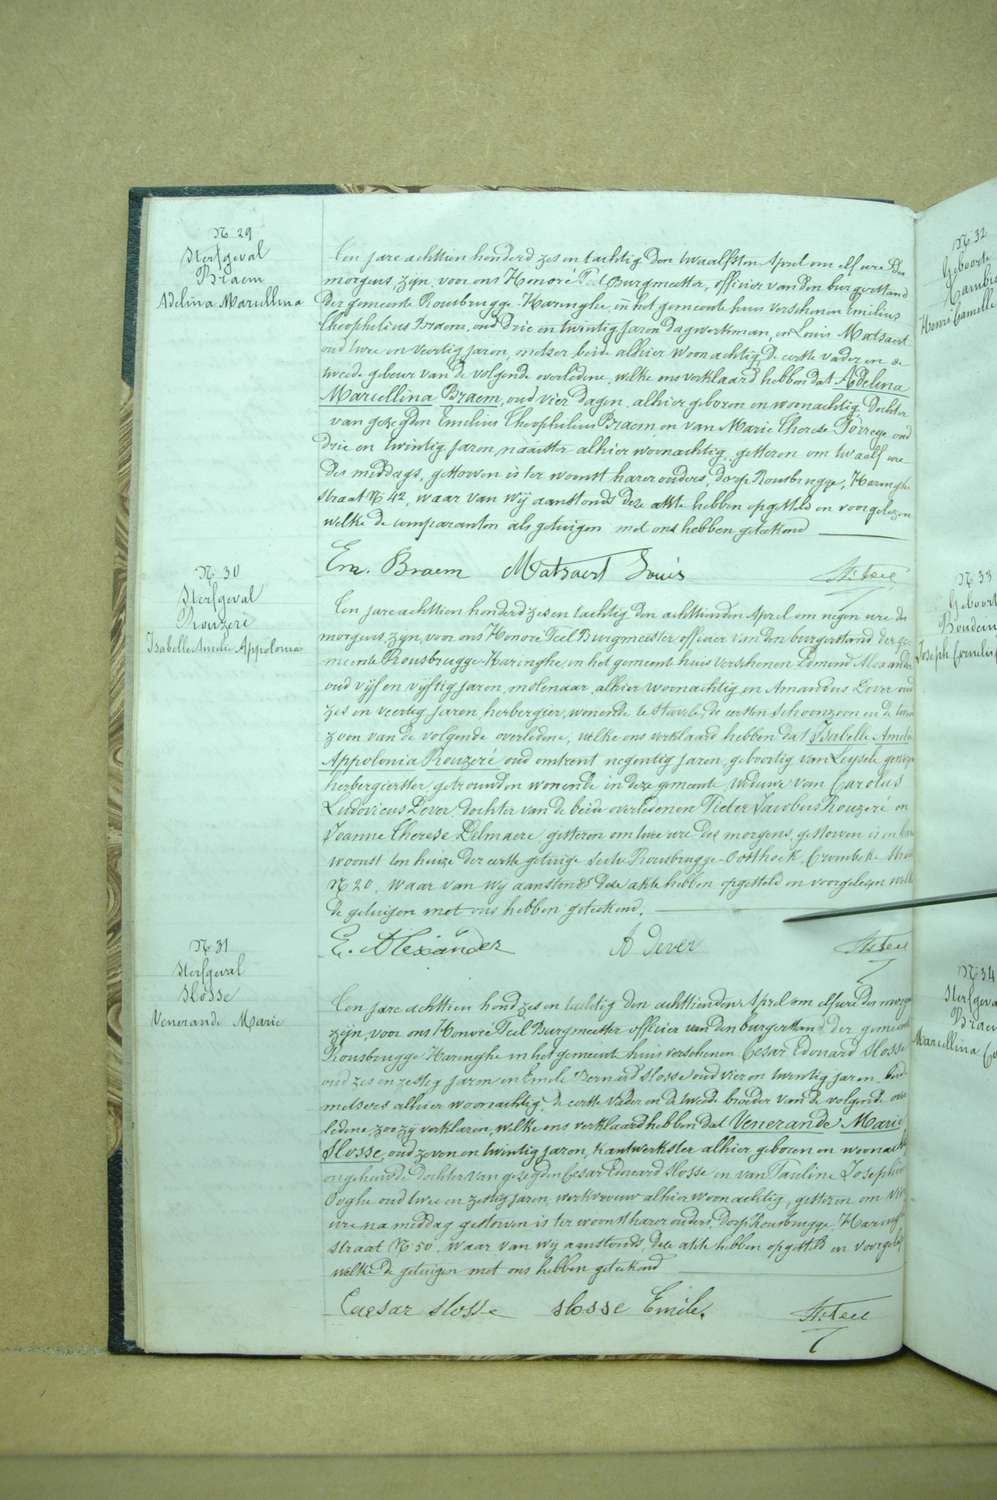 N. 29
Sterfgeval
Braem
Adelina Marcellina
Een jare achttien honderd zes en tachtig den twaalfsten April om elf ure des
morgens, zijn, voor ons Honoré Teel Burgmeester, officier van den burgerstand
der gemeente Rousbrugge-Haringhe, in het gemeente huis verschenen Emelius
Theophelius Braem, oud drie en twintig jaren dagwerkman, en Louis Matsaert
oud twee en veertig jaren, metser beide alhier woonachtig, de eerste vader en de
tweede gebuer van de volgende overledene, welke ons verklaard hebben dat Adelina
Marcellina Braem, oud vier dagen, alhier geboren en woonachtig, dochter
van gezegden Emelius Theophelius Braem, en van Marie Therese oud
drie en twintig jaren, naaister alhier woonachtig, gisteren om twaalf ure
des middags, gestorven is ter woonst harer ouders, dorp Rousbrugge, Haringhe
straat N. 42, waar van wij aanstonds deze akte hebben opgesteld en voorgelezen
welke de comparanten als getuigen met ons hebben geteekend
Em. Braem Matsaert Louis H. Teel
N. 30
Sterfgeval
Rouzeré
Isabelle Amelie Appolonia
Een jare achttien honderd zes en tachtig den achttienden April om negen ure des
morgens, zijn, voor ons Honoré Teel Burgmeester, officier van den burgerstand der ge-
meente Rousbrugge-Haringhe, in het gemeente huis verschenen Edmond Alexander
oud vijf en vijftig jaren, molenaar, alhier woonachtig en Amandus Dever oud
zes en veertig jaren, herbergier, wonende te Stavele, de eersten schoonzoon en de tweede
zoon van de volgende overledene, welke ons verklaard hebben dat Isabelle Amelie
Appolonia Rouzeré oud omtrent negentig jaren, geboortig van Leysele gewezen
herbergierster, getrouwden wonende in deze gemeente, weduwe van Carolus
Ludovicus Dever, dochter van de beide overledenen Pieter Jacobus Rouzeré en
Joanne Therese Delmaere gisteren om twee ure des morgens, gestorven is in hare
woonst ten huize der eerste getuige secte Rousbrugge-Oosthoek, Crombeke straat
N. 20, waar van wij aanstonds deze akte hebben opgesteld en voorgelezen welke
de getuigen met ons hebben geteekend.
E. Alexander A Dever H. Teel
N. 31
Sterfgeval
Slosse
Venerande Marie
Een jare achttien hond zes en tachtig den achttienden April om elf ure des morgens
zijn, voor ons Honoré Teel Burgmeester officier van den burgerstand der gemeente
Rousbrugge-Haringhe in het gemeente huis verschenen Cesar Edouard Slosse
oud zes en zestig jaren en Emile Bernard Slosse oud vier en twintig jaren, beide
metsers alhier woonachtig, de eerste vader en de tweede broeder van de volgende over
ledene, zoo zij verklaren, welke ons verklaard hebben dat Venerande Marie
Slosse, oud zeven en twintig jaren, kantwerkster alhier geboren en woonachtig
ongehuwde dochter van gezegden Cesar Edouard Slosse en van Pauline Josephine
oud twee en zestig jaren, werkvrouw alhier woonachtig, gisteren om vier
ure na middag gestorven is ter woonst harer ouders, dorp Rousbrugge, Haringhe
straat N. 50, waar van wij aanstonds, deze akte hebben opgesteld en voorgelezen
welke de getuigen met ons hebben geteekend
Caesar Slosse Slosse Emile. H. Teel
N. 32
Geboorte
Henri Camille
N. 33
Geboorte
Joseph Cornelis
N. 34
Sterfgeval
Braem
Marcellina